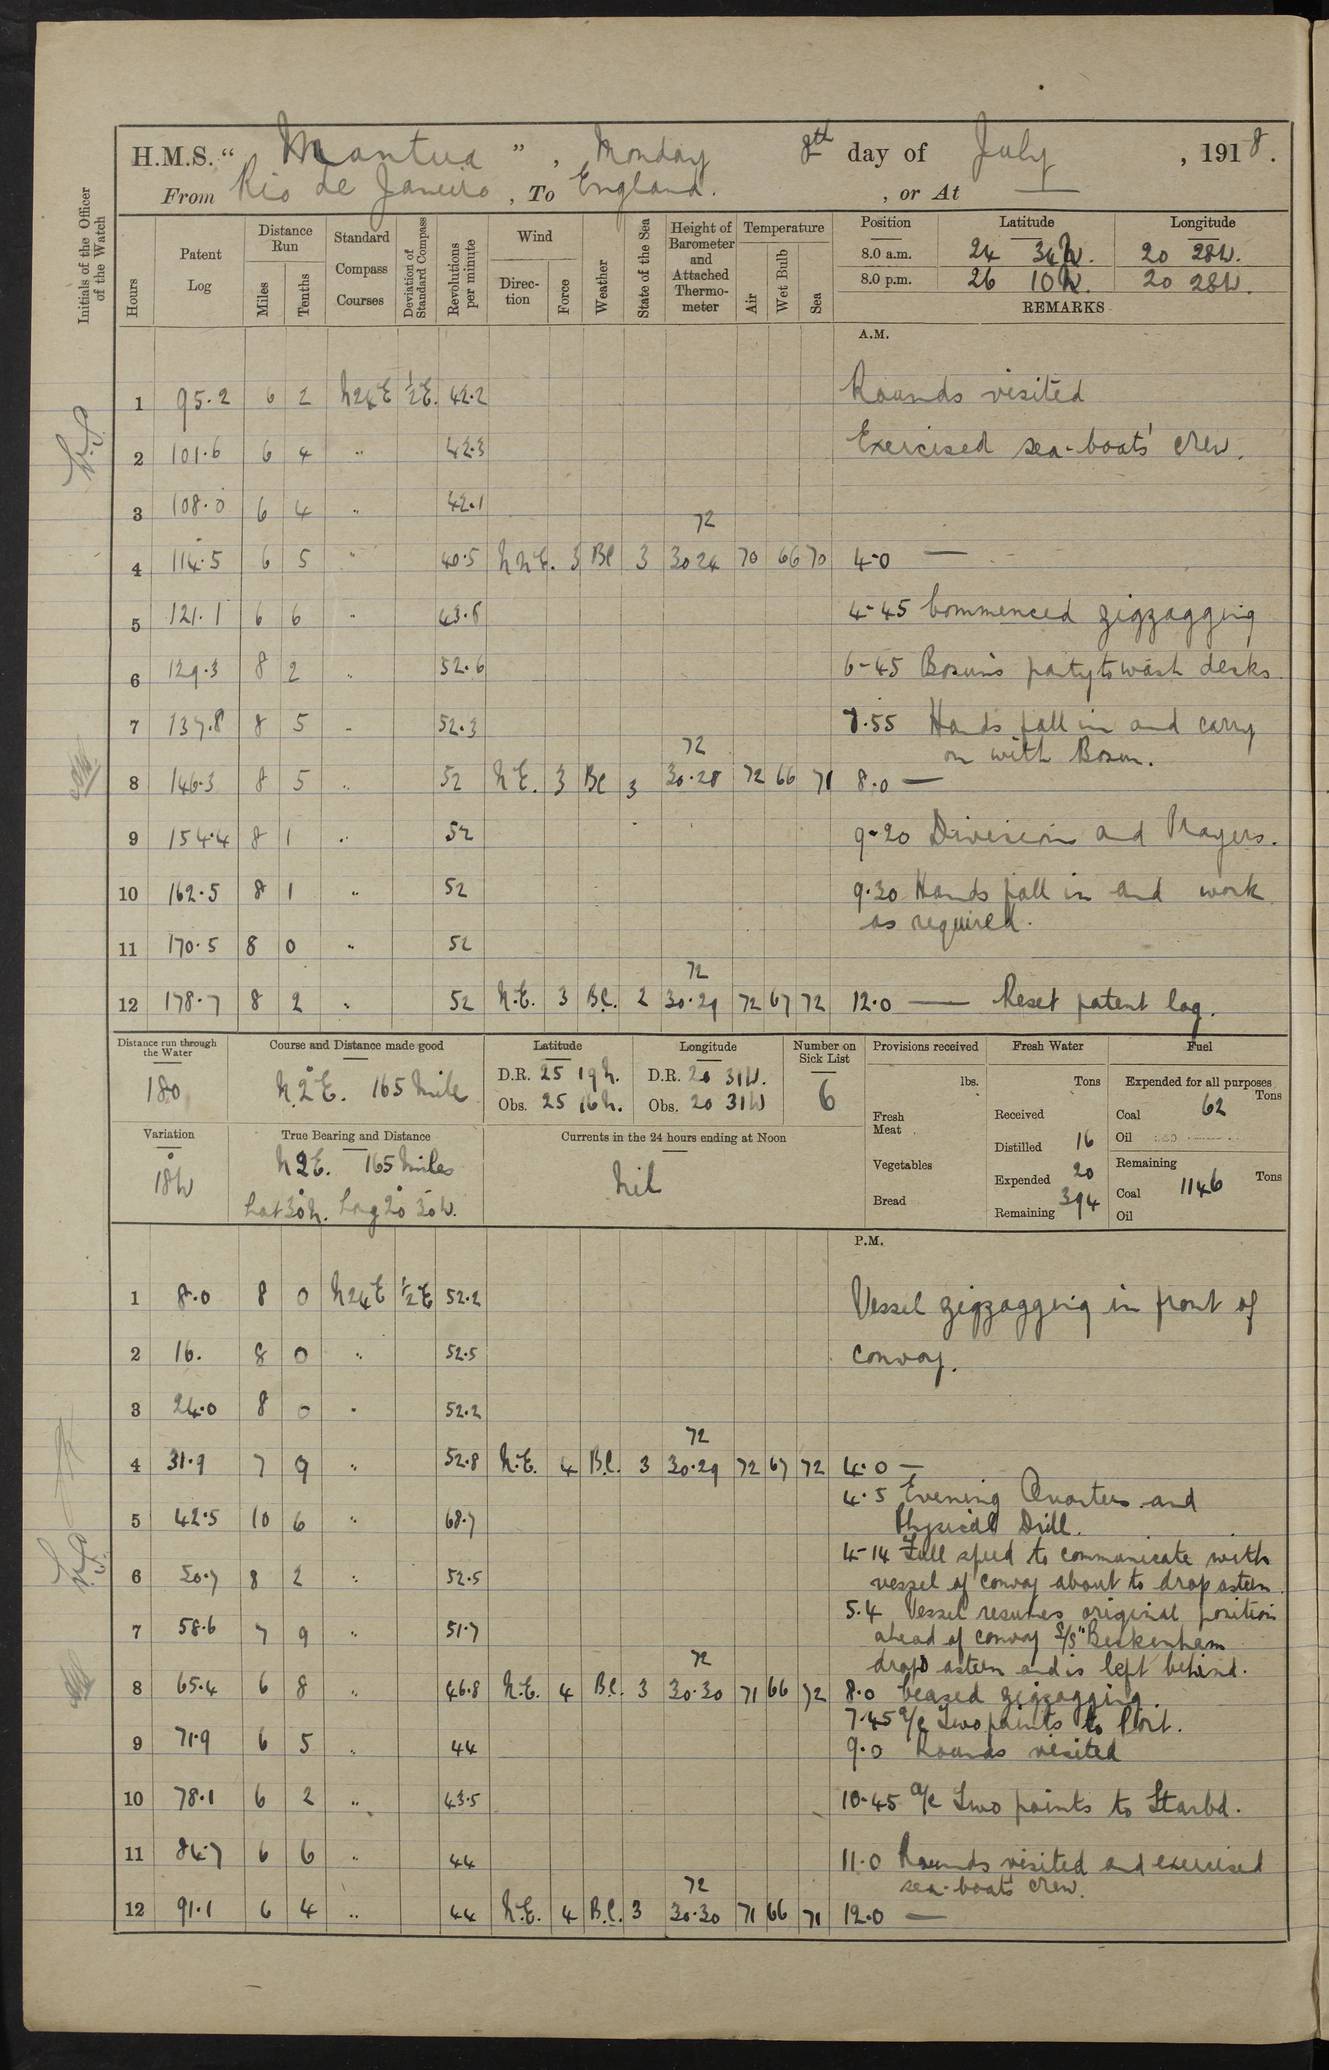 H.M.S. “ Mantua ” , Monday 8th day of July , 1918.
From Rio de Janeiro , To England. , or At —
Initials of the Officer of the Watch
Hours Patent Log Distance Run Miles Tenths Standard Compass Courses Deviation of Standard Compass Revolutions per minute Wind Direction Force Weather State of the Sea Height of Barometer and Attached Thermometer Temperature Air Wet Bulb Sea Position Latitude Longitude
8.0 a.m. 24 34N. 20 28W.
8.0 p.m. 26 10N. 20 28W.
REMARKS
A.M.
1 95.2 6 2 N24E ½E. 42.2 Rounds visited
2 101.6 6 4 " 42.3 Exercised sea-boats' crew.
3 108.0 6 4 " 42.1
72
4 114.5 6 5 " 40.5 NNE. 3 BC 3 30 24 70 66 70 4-0 —
5 121.1 6 6 " 43.8 4-45 Commenced zigzagging
6 129.3 8 2 " 52.6 6-45 Bosun's party to wash decks.
7 137.8 8 5 " 52.3 7.55 Hands fall in and carry
72 on with Bosun.
8 146.3 8 5 " 52 NE. 3 BC 3 30.28 72 66 71 8.0 —
9 154.4 8 1 " 52 9-20 Divisions and Prayers.
10 162.5 8 1 " 52 9.30 Hands fall in and work
as required.
11 170.5 8 0 " 52
72
12 178.7 8 2 " 52 N.E. 3 B.C. 2 30.29 72 67 72 12.0 — Reset patent log.
Distance run through the Water Course and Distance made good Latitude Longitude Number on Sick List Provisions received Fresh Water Fuel
180 N.2°E. 165 Mile D.R. 25 19N. D.R. 20 31W. 6 lbs. Tons Expended for all purposes Tons
Obs. 25 16N. Obs. 20 31W Fresh Meat Received Coal 62
Variation True Bearing and Distance Currents in the 24 hours ending at Noon Distilled 16 Oil
18°W N2E. 165 Miles Nil Vegetables Expended 20 Remaining Tons
Lat 30N. Long 20° 30W. Bread Remaining 394 Coal 1146
Oil
P.M.
1 8.0 8 0 N24E ½E 52.2 Vessel zigzagging in front of
2 16. 8 0 " 52.5 convoy.
3 24.0 8 0 " 52.2
72
4 31.9 7 9 " 52.8 N.E. 4 B.C. 3 30.29 72 67 72 4.0 —
4.5 Evening Quarters and
5 42.5 10 6 " 68.7 Physical Drill.
4-14 Full speed to communicate with
6 50.7 8 2 " 52.5 vessel of convoy about to drop astern.
5.4 Vessel resumes original position
7 58.6 7 9 " 51.7 ahead of convoy S/S "Beckenham
72 drops astern and is left behind.
8 65.4 6 8 " 46.8 N.E. 4 B.C. 3 30.30 71 66 72 8.0 Ceased zigzagging.
7.45 a/c Two points to Port.
9 71.9 6 5 " 44 9.0 Rounds visited
10 78.1 6 2 " 43.5 10-45 a/c Two points to Starbd.
11 84.7 6 6 " 44 11.0 Rounds visited and exercised
72 sea-boats crew.
12 91.1 6 4 " 44 N.E. 4 B.C. 3 30.30 71 66 71 12.0 —